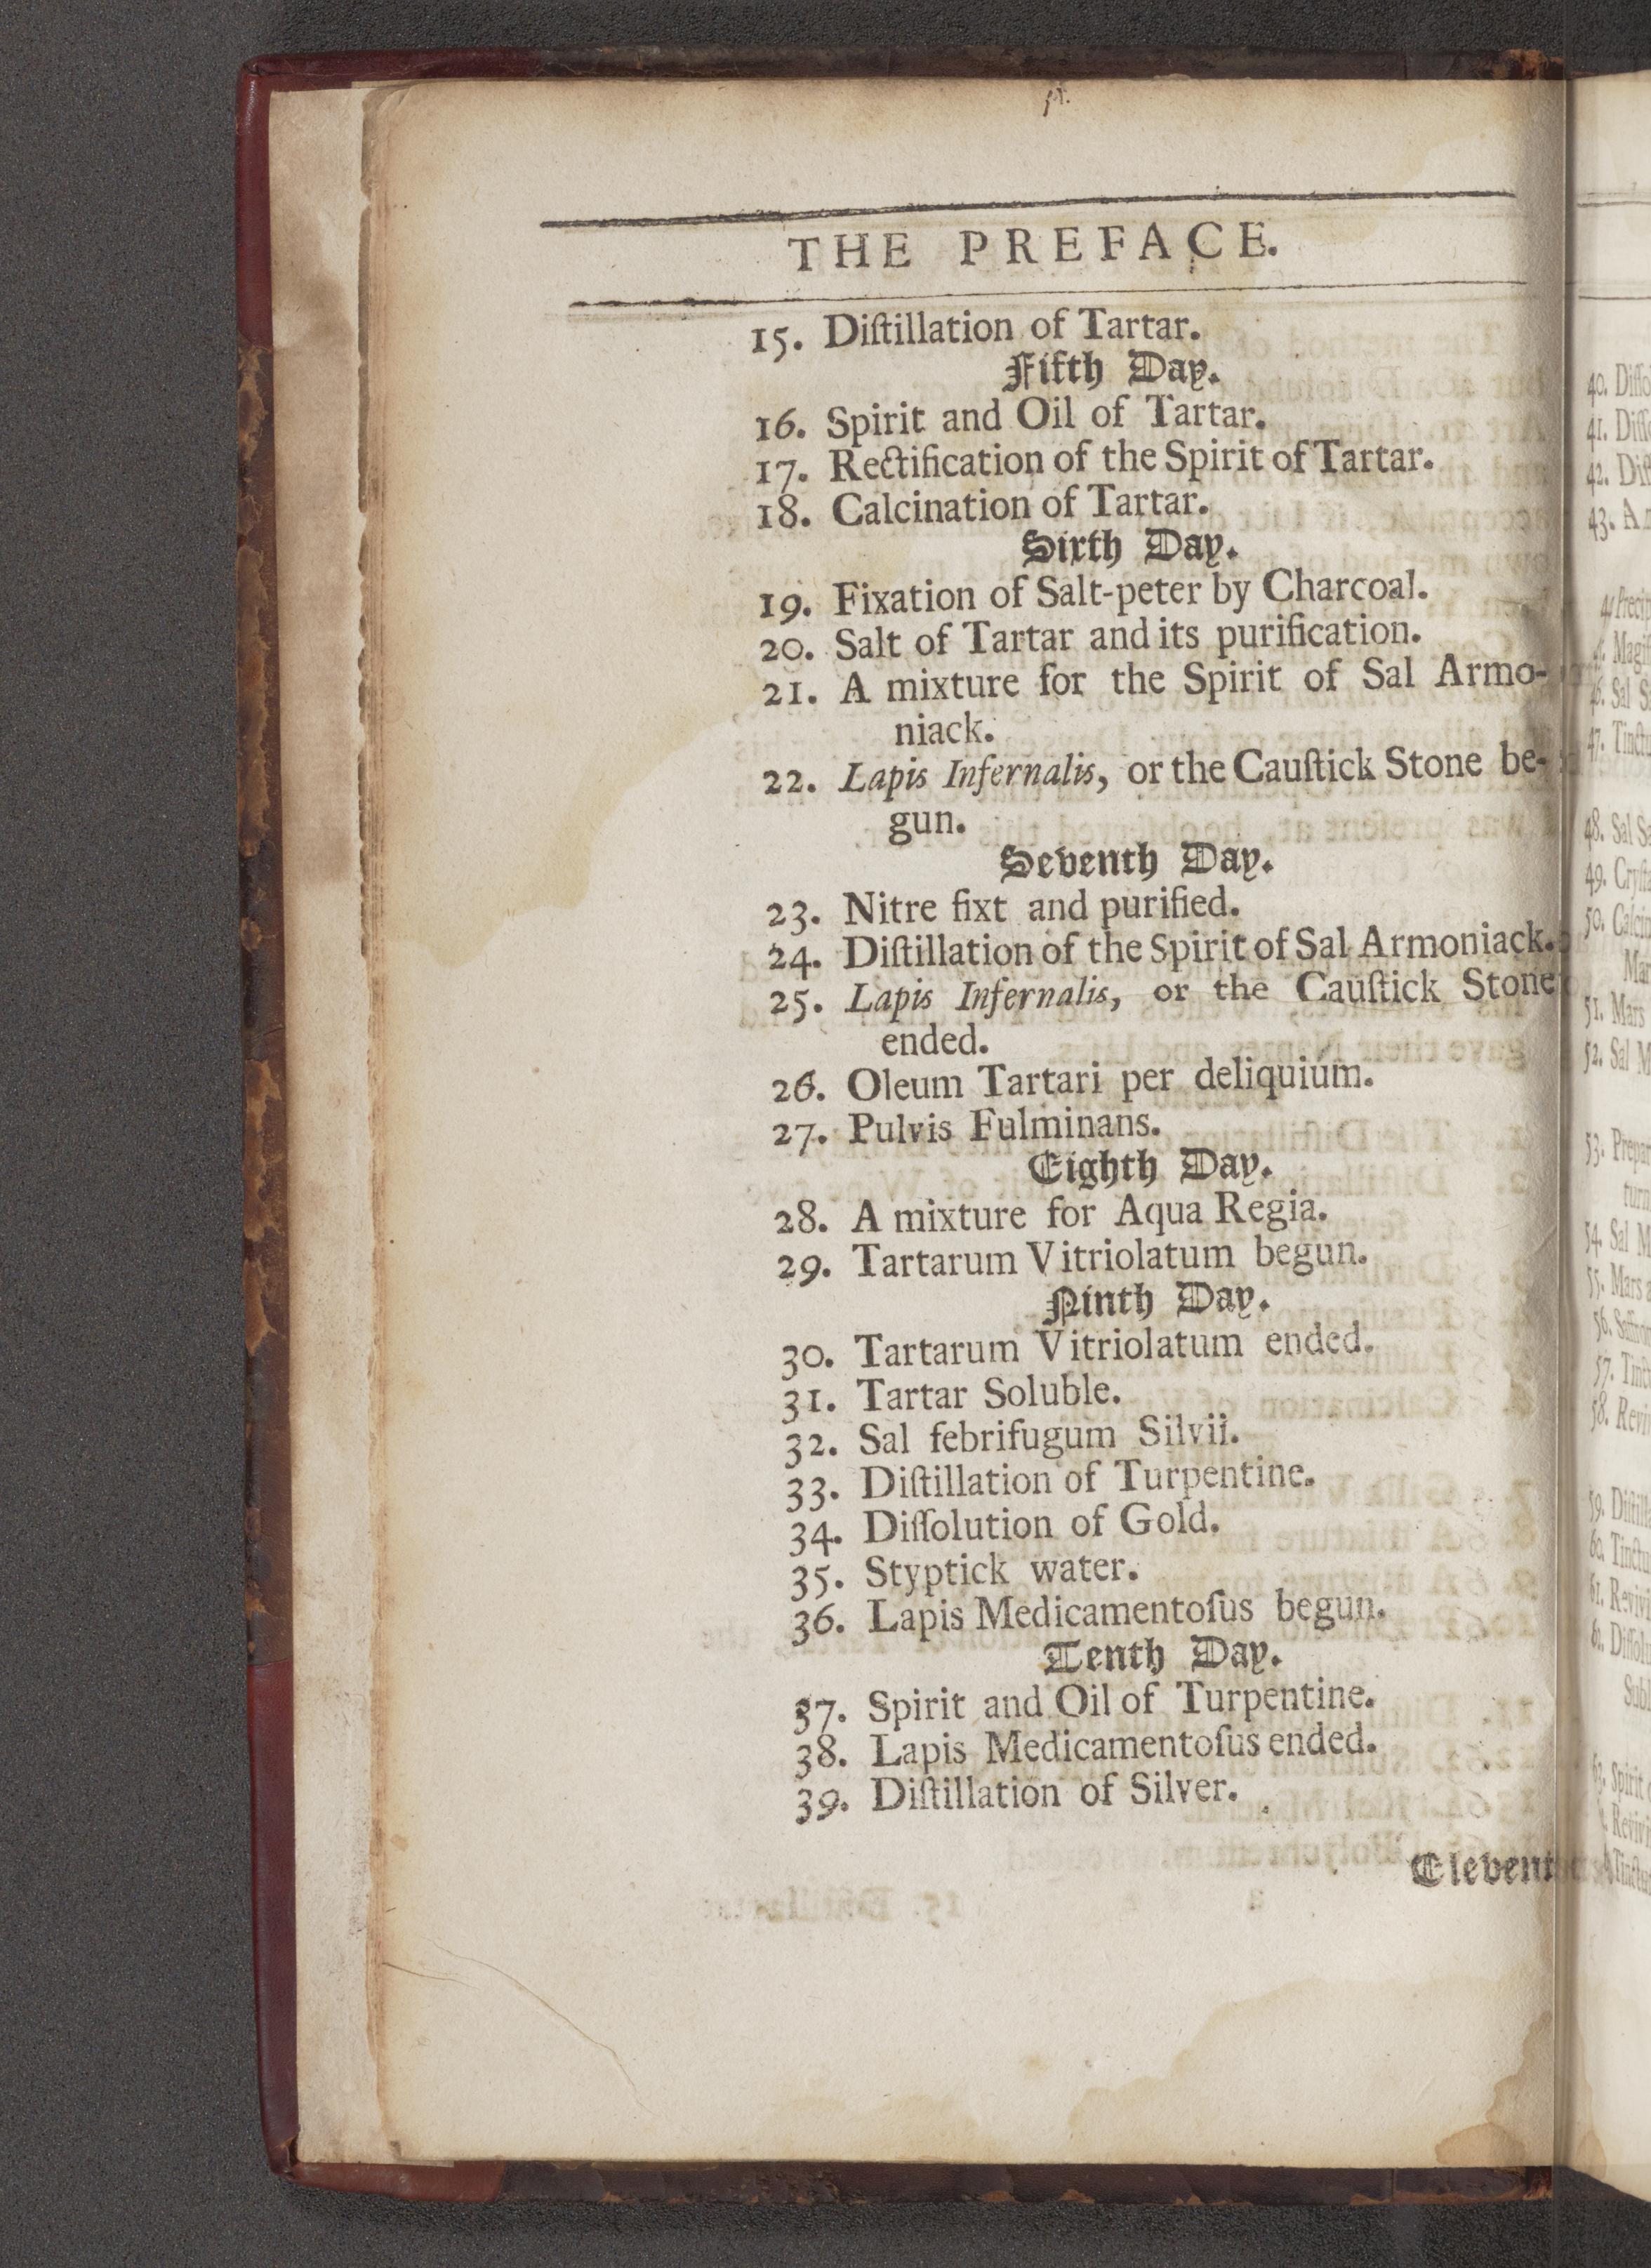 THE PREFACE.
15. Diſtillation of Tartar.
Fifth Day.
16. Spirit and Oil of Tartar.
17. Rectification of the Spirit of Tartar.
18. Calcination of Tartar.
Sixth Day.
19. Fixation of Salt-peter by Charcoal.
20. Salt of Tartar and its purification.
21. A mixture for the Spirit of Sal Armo-
niack.
22. Lapis Infernalis, or the Cauſtick Stone be-
gun.
Seventh Day.
23. Nitre fixt and purified.
24. Diſtillation of the Spirit of Sal Armoniack.
25. Lapis Infernalis, or the Cauſtick Stone
ended.
26. Oleum Tartari per deliquium.
27. Pulvis Fulminans.
Eighth Day.
28. A mixture for Aqua Regia.
29. Tartarum Vitriolatum begun.
Ninth Day.
30. Tartarum Vitriolatum ended.
31. Tartar Soluble.
32. Sal febrifugum Silvii.
33. Diſtillation of Turpentine.
34. Diſſolution of Gold.
35. Styptick water.
36. Lapis Medicamentoſus begun.
Tenth Day.
37. Spirit and Oil of Turpentine.
38. Lapis Medicamentoſus ended.
39. Diſtillation of Silver.
Elevent
40.
41.
42.
43. A
47.
48. Sal
49.
50.
51. Mars
52. Sal M
53.
54. Sal M
55. Mars
56.
57.
58.
59.
60.
61.